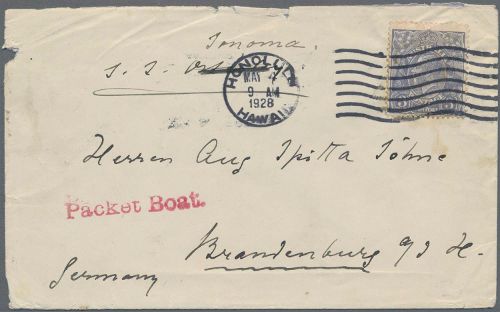 Sonoma.
S. S.
HONOLULU
MAY
9 AM
1928
HAWAII
Herren Aug Spitta Söhne
Packet Boat.
Brandenburg a/d H.
Germany